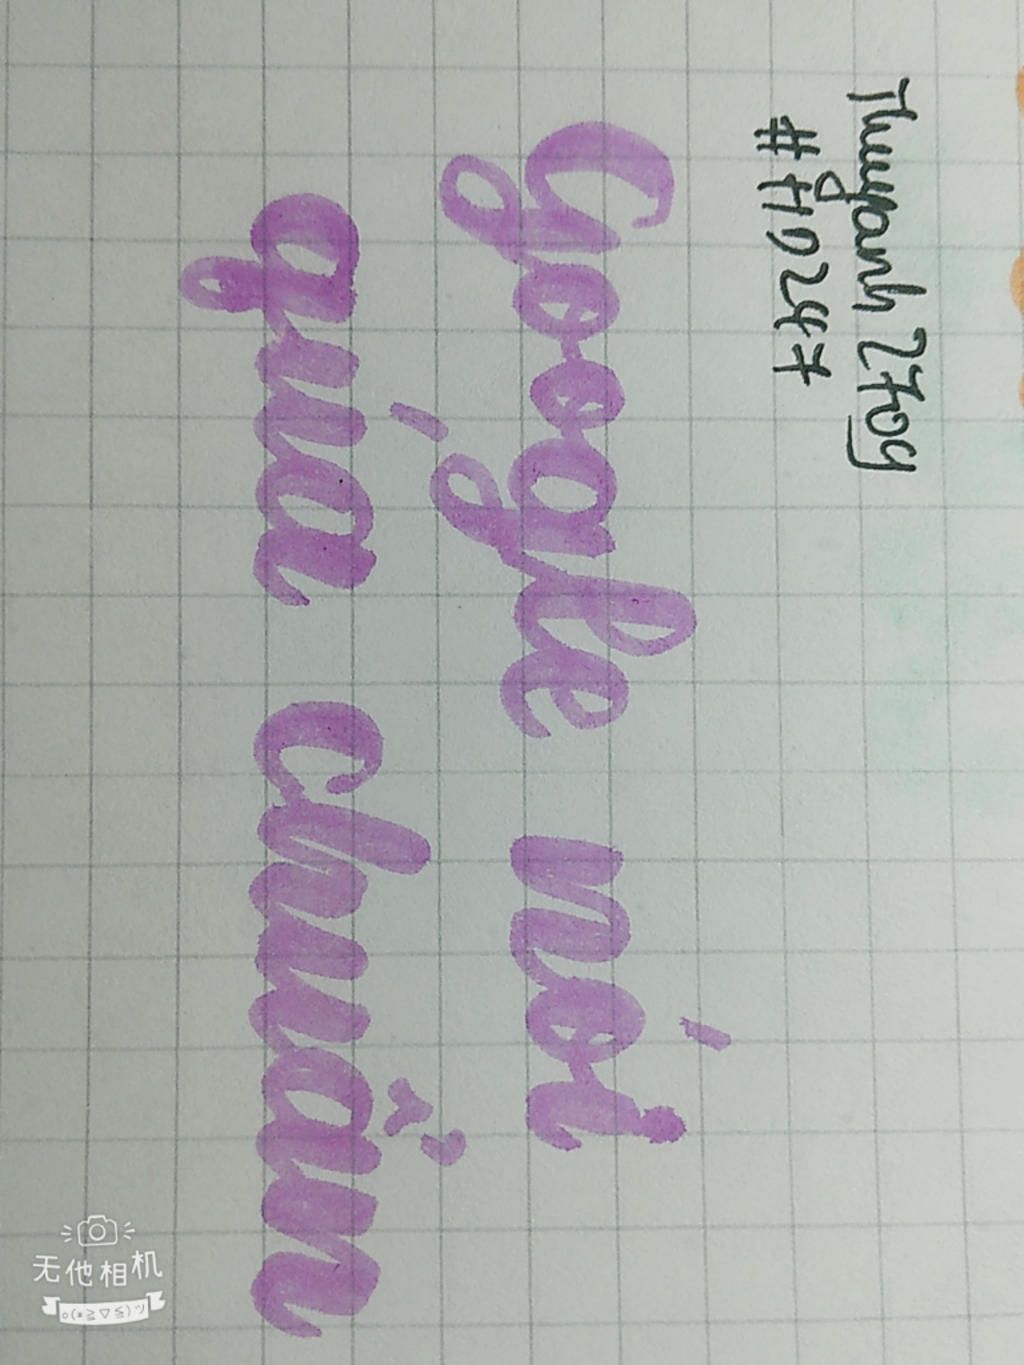 Thuyanh2709
#H0247
Google nói
quá chuẩn
无他相机
o(*≧▽≦)ツ